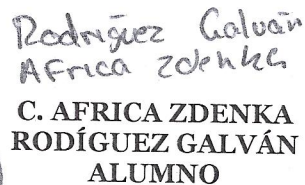 Rodríguez Galván
AFrica Zdenka
C. AFRICA ZDENKA
RODÍGUEZ GALVÁN
ALUMNO